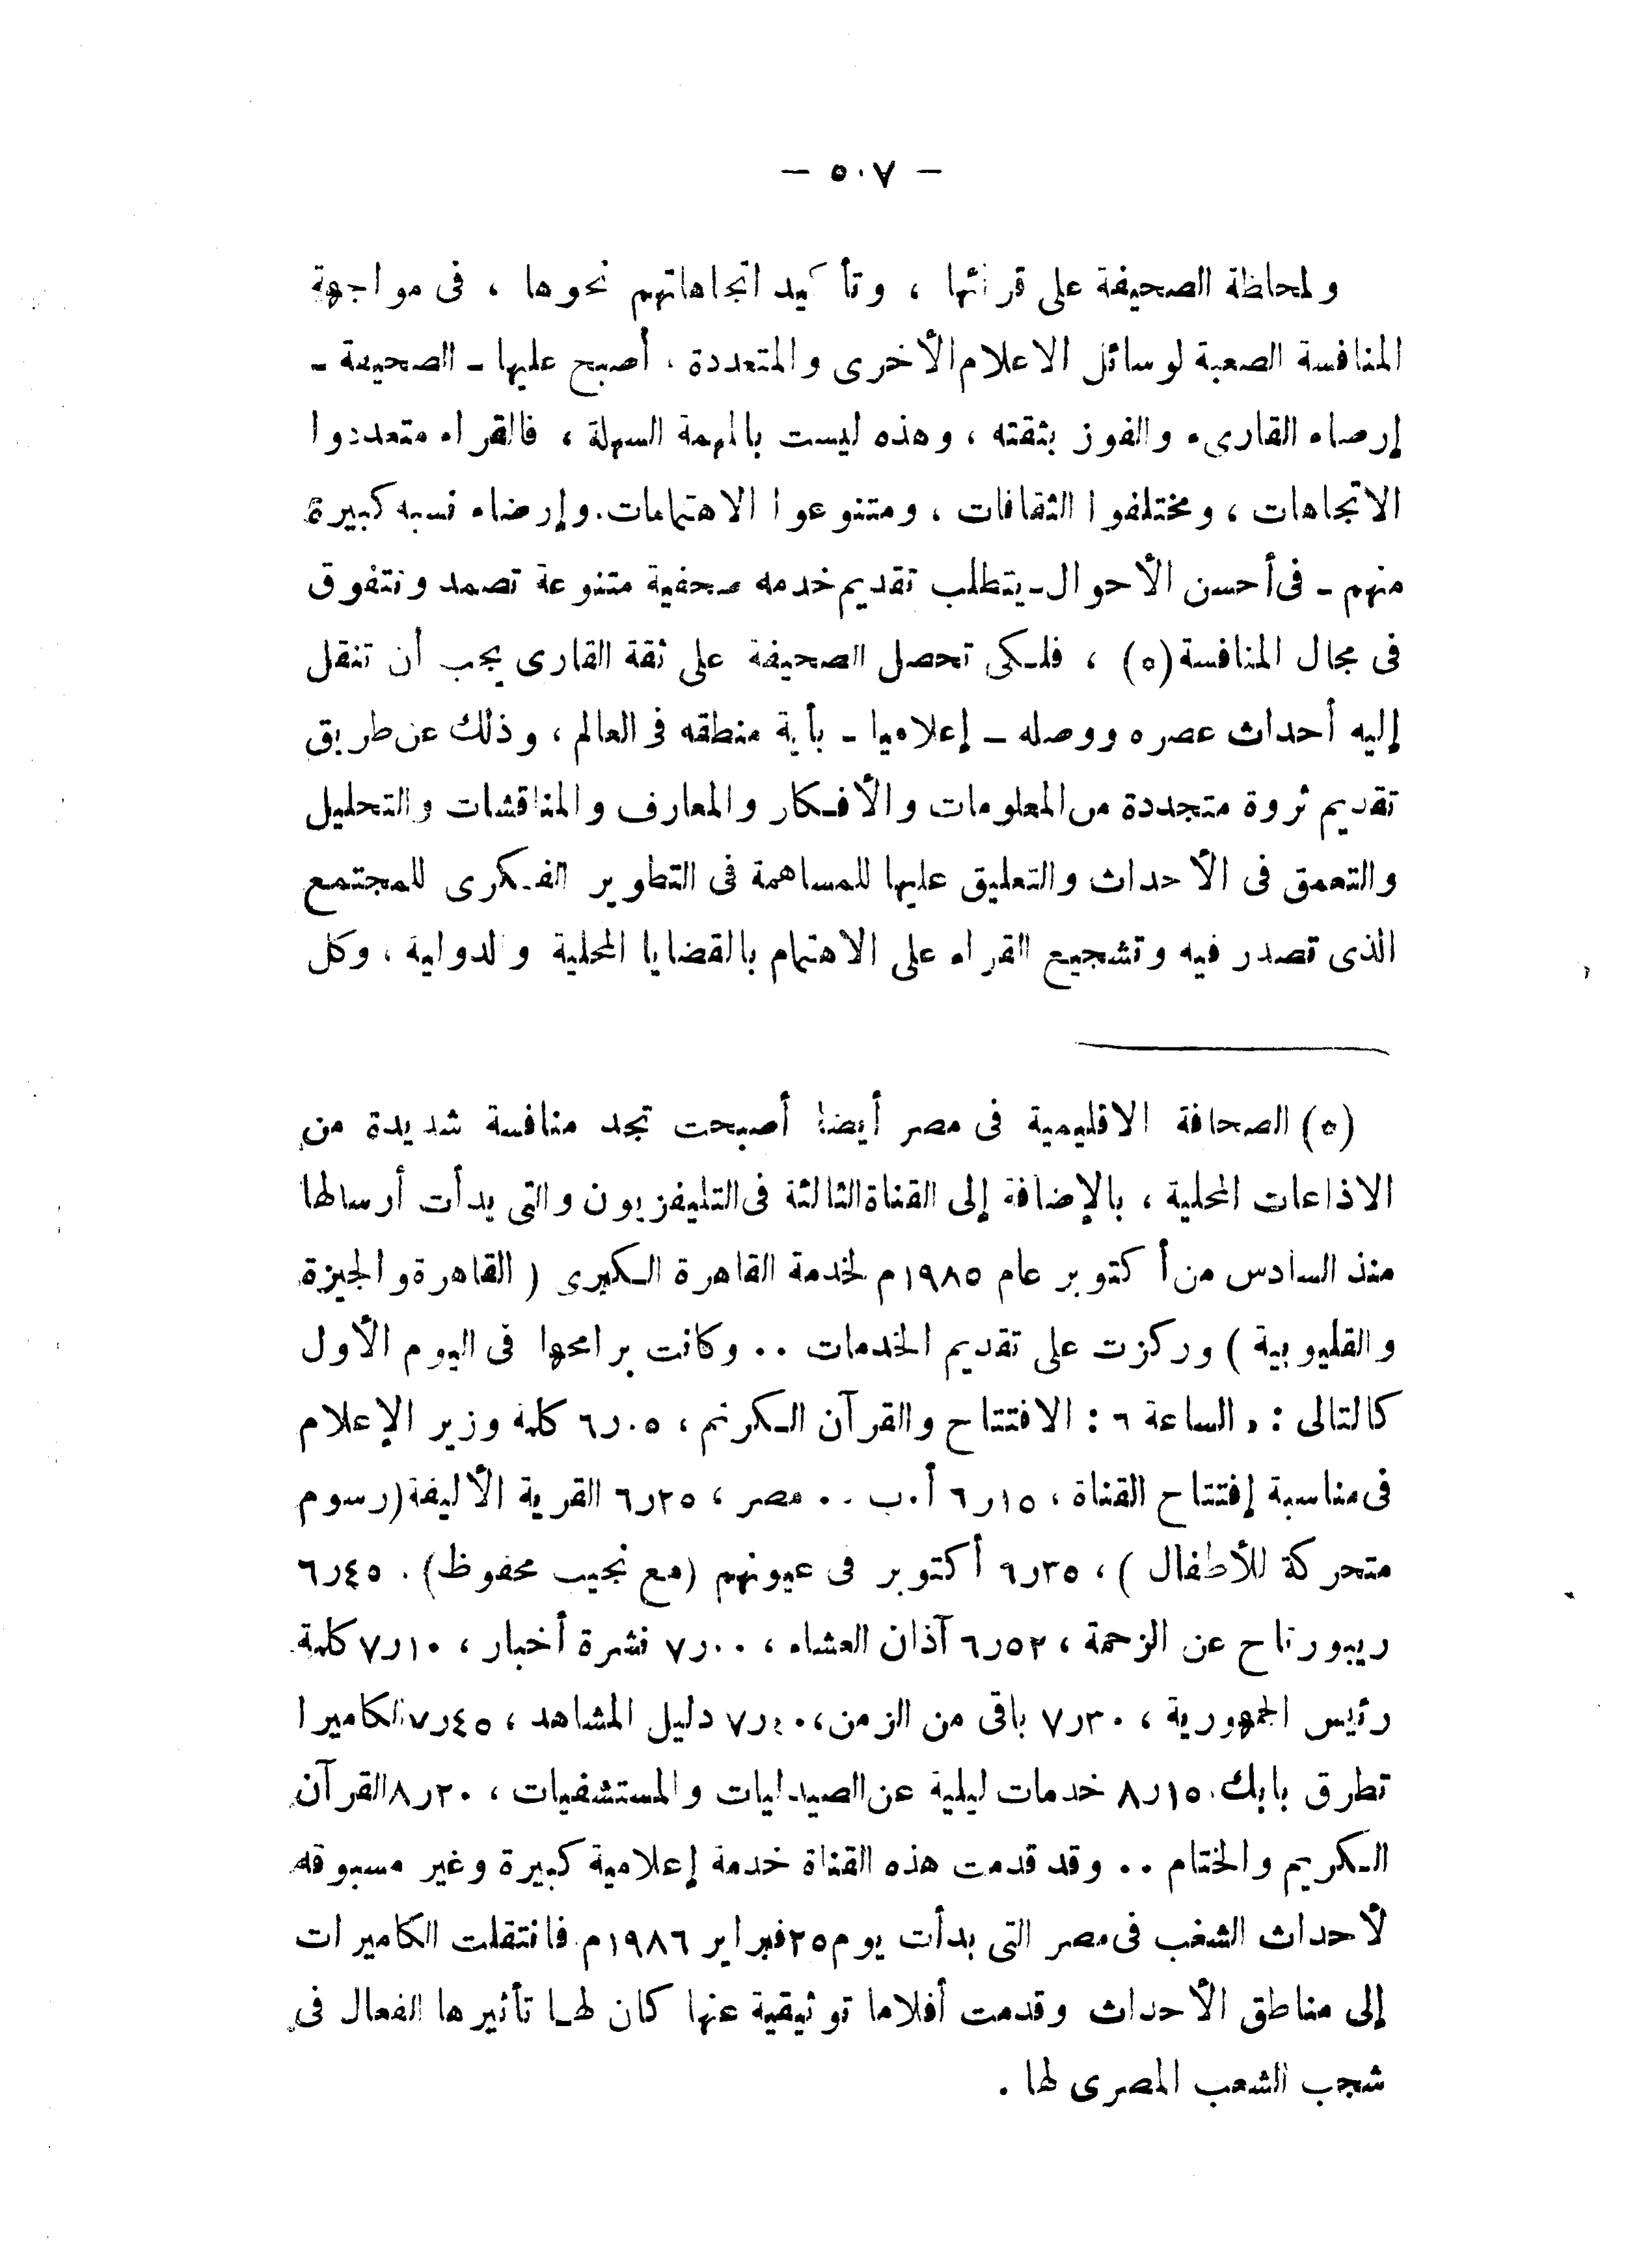 — ٥٠٧ —
ولمحاظة الصحيفة على قرائها ، وتأكيد اتجاهاتهم نحوها ، فى مواجهة
المنافسة الصعبة لوسائل الاعلام الأخرى والمتعددة ، أصبح عليها - الصحيفة -
إرضاء القارىء والفوز بثقته ، وهذه ليست بالمهمة السهلة ، فالقراء متعددوا
الاتجاهات ، ومختلفوا الثقافات ، ومتنوعوا الاهتمامات . وإرضاء نسبه كبيرة
منهم - فى أحسن الأحوال - يتطلب تقديم خدمه صحفية متنوعة تصمد وتتفوق
فى مجال المنافسة (٥) ، فلكى تحصل الصحيفة على ثقة القارى يجب أن تنقل
إليه أحداث عصره ووصله - إعلاميا - بأية منطقه فى العالم ، وذلك عن طريق
تقديم ثروة متجددة من المعلومات والأفكار والمعارف والمناقشات والتحليل
والتعمق فى الأحداث والتعليق عليها للمساهمة فى التطوير الفكرى للمجتمع
الذى تصدر فيه وتشجيع القراء على الاهتمام بالقضايا المحلية والدولية ، وكل
(٥) الصحافة الاقليمية فى مصر أيضا أصبحت تجد منافسة شديدة من
الاذاعات المحلية ، بالإضافة إلى القناة الثالثة فى التليفزيون والتى بدأت أرسالها
منذ السادس من أكتوبر عام ١٩٨٥م لخدمة القاهرة الكبرى ( القاهرة والجيزة
والقليوبية ) وركزت على تقديم الخدمات .. وكانت برامجها فى اليوم الأول
كالتالى : , الساعة ٦ : الافتتاح والقرآن الكريم ، ٠٥ر٦ كلمة وزير الإعلام
فى مناسبة إفتتاح القناة ، ١٥ر٦ أ.ب .. مصر ، ٢٥ر٦ القرية الأليفة (رسوم
متحركة للأطفال ) ، ٣٥ر٦ أكتوبر فى عيونهم (مع نجيب محفوظ) . ٤٥ر٦
ريبورتاج عن الزحمة ، ٥٢ر٦ آذان العشاء ، ٠٠ر٧ نشرة أخبار ، ١٠ر٧ كلمة
رئيس الجمهورية ، ٣٠ر٧ باقى من الزمن ، دليل المشاهد ، ٤٥ر٧ الكاميرا
تطرق بابك . ١٥ر٨ خدمات ليلية عن الصيدليات والمستشفيات ، ٢٠ر٨ القرآن
الكريم والختام .. وقد قدمت هذه القناة خدمة إعلامية كبيرة وغير مسبوقه
لأحداث الشغب فى مصر التى بدأت يوم ٢٥ فبراير ١٩٨٦م فانتقلت الكاميرات
إلى مناطق الأحداث وقدمت أفلاما توثيقية عنها كان لها تأثيرها الفعال فى
شجب الشعب المصرى لها .